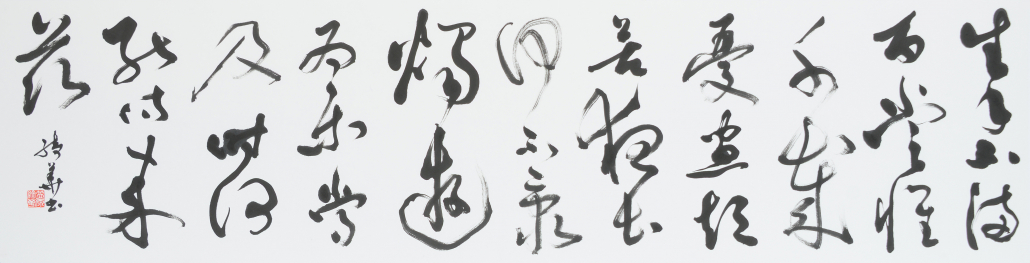 生年不滿
百常懷
千歲
憂晝短
苦夜長
何不秉
燭遊
為樂當
及時何
能待來
茲
華書